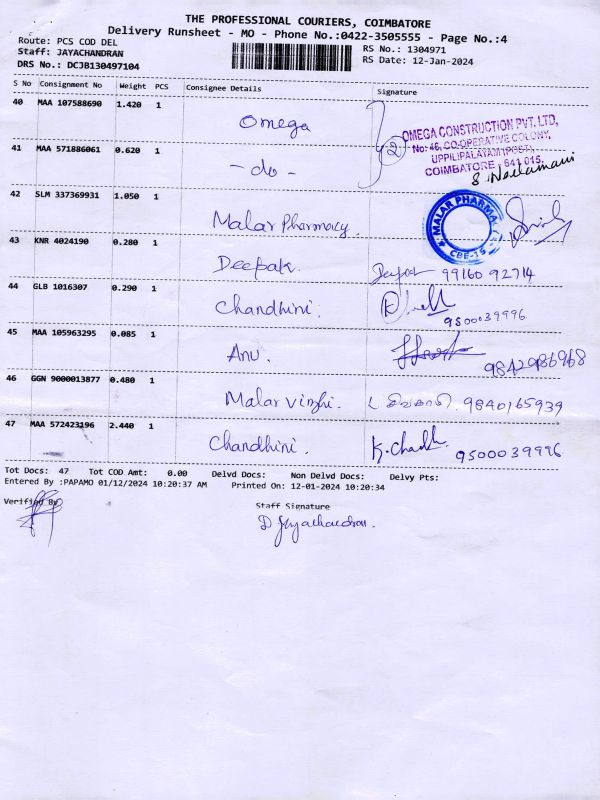 THE PROFESSIONAL COURIERS, COIMBATORE
Delivery Runsheet - MO - Phone No.:0422-3505555 - Page No.:4
Route: PCS COD DEL
RS No.: 1304971
Staff: JAYACHANDRAN
RS Date: 12-Jan-2024
DRS No.: DCJB130497104
S No Consignment No Weight PCS Consignee Details Signature
40 MAA 107588690 1.420 1
Omega
2
OMEGA CONSTRUCTION PVT. LTD,
No: 46, CO-OPERATIVE COLONY,
UPPILIPALAYAM (POST),
COIMBATORE - 641 015.
41 MAA 571886061 0.620 1
- do -
42 SLM 337369931 1.050 1
Malar Pharmacy.
MALAR PHARMA
CBE-15
43 KNR 4024190 0.280 1
Deepak. Deepak 99160 92714
44 GLB 1016307 0.290 1
Chandhini. 9500039996
45 MAA 105963295 0.085 1
Anu. 9842986968
46 GGN 9000013877 0.480 1
Malar vizhi. 9840165939
47 MAA 572423196 2.440 1
Chandhini. K. Chandh 9500039996
Tot Docs: 47 Tot COD Amt: 0.00 Delvd Docs: Non Delvd Docs: Delvy Pts:
Entered By :PAPAMO 01/12/2024 10:20:37 AM Printed On: 12-01-2024 10:20:34
Verified By
Staff Signature
D Jeyachandran.